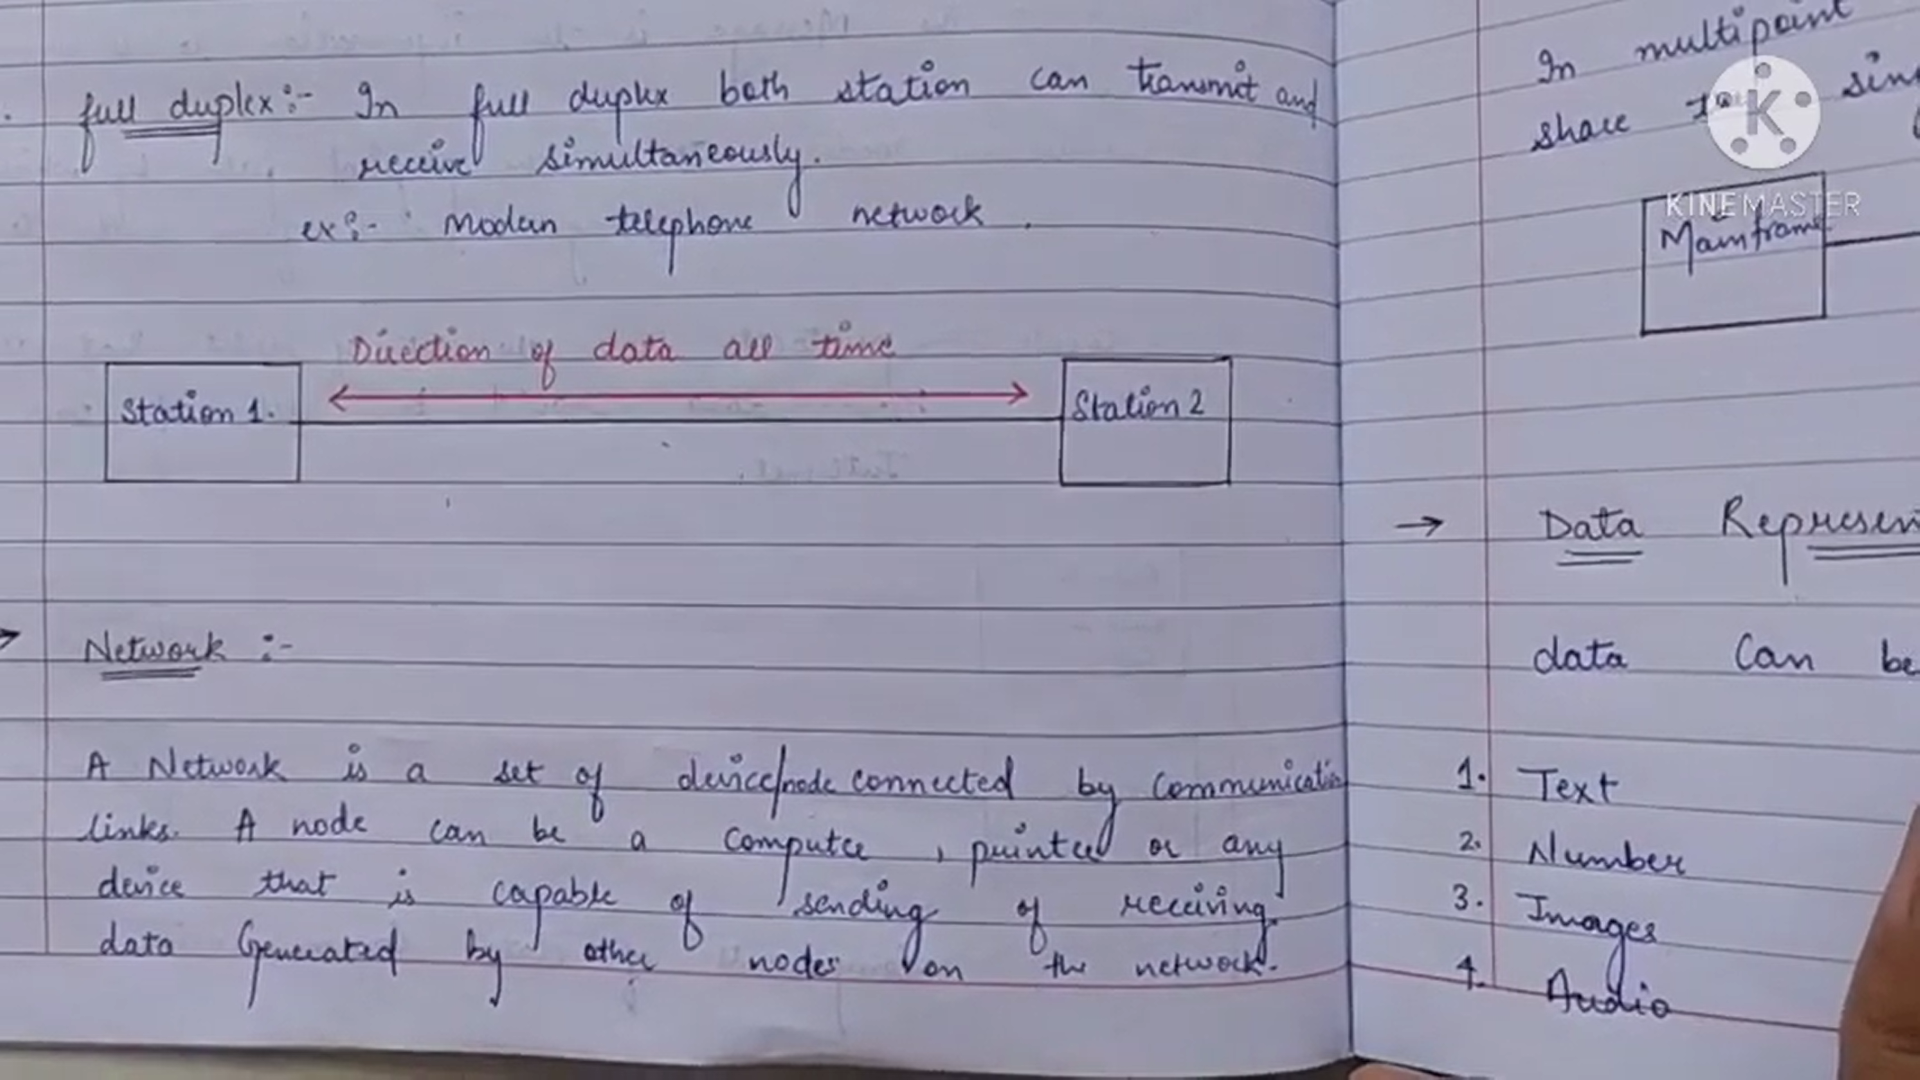 full duplex:- In full duplex both station can transmit and
receive simultaneously.
ex:- Modern telephone network.
Direction of data all time
Station 1.
Station 2
→ Network :-
A Network is a set of device/node connected by communication
links. A node can be a computer, printer or any
device that is capable of sending of receiving
data Generated by other nodes on the network.
In multipoint
share
KINEMASTER
Mainframe
→ Data
data Can be
1. Text
2. Number
3. Images
4. Audio